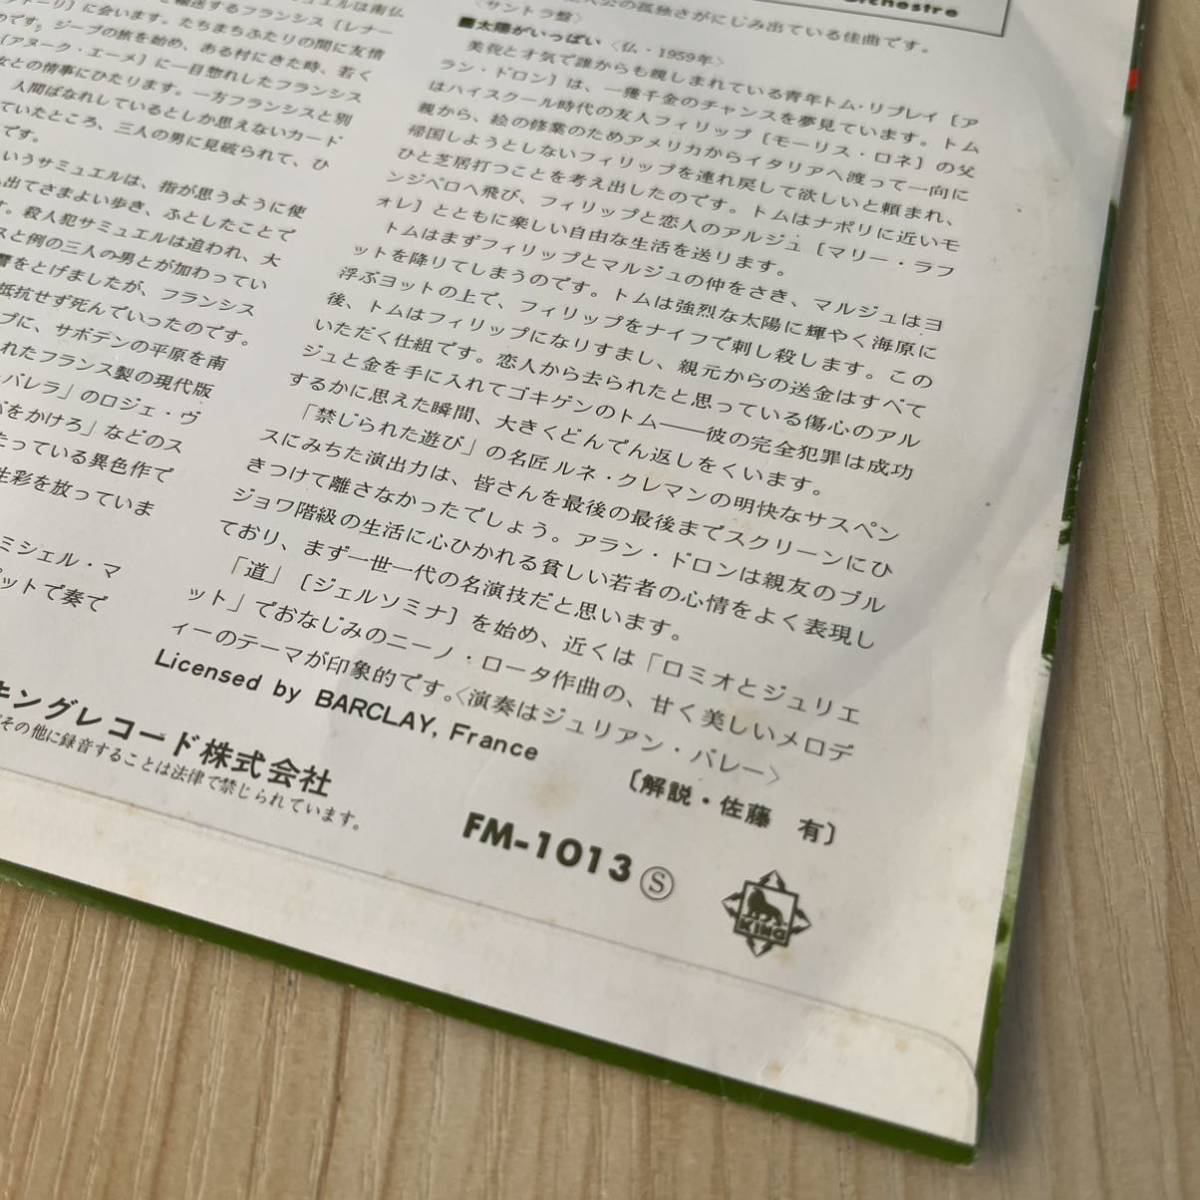 ュエルは南仏
輸送するフランシス〔レナー
ドーリ〕に会います。たちまちふたりの間に友情
です。ジープの旅を始め、ある村にきた時、若く
〔アヌーク・エーメ〕に一目惚れしたフランシス
女との情事にひたります。一方フランシスと別
人間ばなれしているとしか思えないカード
ていたところ、三人の男に見破られて、ひ
です。
いうサミュエルは、指が思うように使
出てさまよい歩き、ふとしたことで
す。殺人犯サミュエルは追われ、大
スと例の三人の男とが加わってい
讐をとげましたが、フランシス
抵抗せず死んでいったのです。
プに、サボテンの平原を南
れたフランス製の現代版
・バレラ」のロジェ・ヴ
をかけろ」などのス
たっている異色作で
生彩を放っていま
ミシェル・マ
ペットで奏で
キングレコード株式会社
その他に録音することは法律で禁じられています。
Orchestre
公の孤独さがにじみ出ている佳曲です。
〈サントラ盤〉
■太陽がいっぱい〈仏・1959年〉
美貌と才気で誰からも親しまれている青年トム・リプレイ〔ア
ラン・ドロン〕は、一獲千金のチャンスを夢見ています。トム
はハイスクール時代の友人フィリップ〔モーリス・ロネ〕の父
親から、絵の修業のためアメリカからイタリアへ渡って一向に
帰国しようとしないフィリップを連れ戻して欲しいと頼まれ、
ひと芝居打つことを考え出したのです。トムはナポリに近いモ
ンジベロへ飛び、フィリップと恋人のアルジュ〔マリー・ラフ
ォレ〕とともに楽しい自由な生活を送ります。
トムはまずフィリップとマルジュの仲をさき、マルジュはヨ
ットを降りてしまうのです。トムは強烈な太陽に輝やく海原に
浮ぶヨットの上で、フィリップをナイフで刺し殺します。この
後、トムはフィリップになりすまし、親元からの送金はすべて
いただく仕組です。恋人から去られたと思っている傷心のアル
ジュと金を手に入れてゴキゲンのトム――彼の完全犯罪は成功
するかに思えた瞬間、大きくどんでん返しをくいます。
「禁じられた遊び」の名匠ルネ・クレマンの明快なサスペン
スにみちた演出力は、皆さんを最後の最後までスクリーンにひ
きつけて離さなかったでしょう。アラン・ドロンは親友のブル
ジョワ階級の生活に心ひかれる貧しい若者の心情をよく表現し
ており、まず一世一代の名演技だと思います。
「道」〔ジェルソミナ〕を始め、近くは「ロミオとジュリエ
ット」でおなじみのニーノ・ロータ作曲の、甘く美しいメロデ
ィーのテーマが印象的です。〈演奏はジュリアン・バレー〉
Licensed by BARCLAY, France
〔解説・佐藤 有〕
FM-1013 Ⓢ
KING